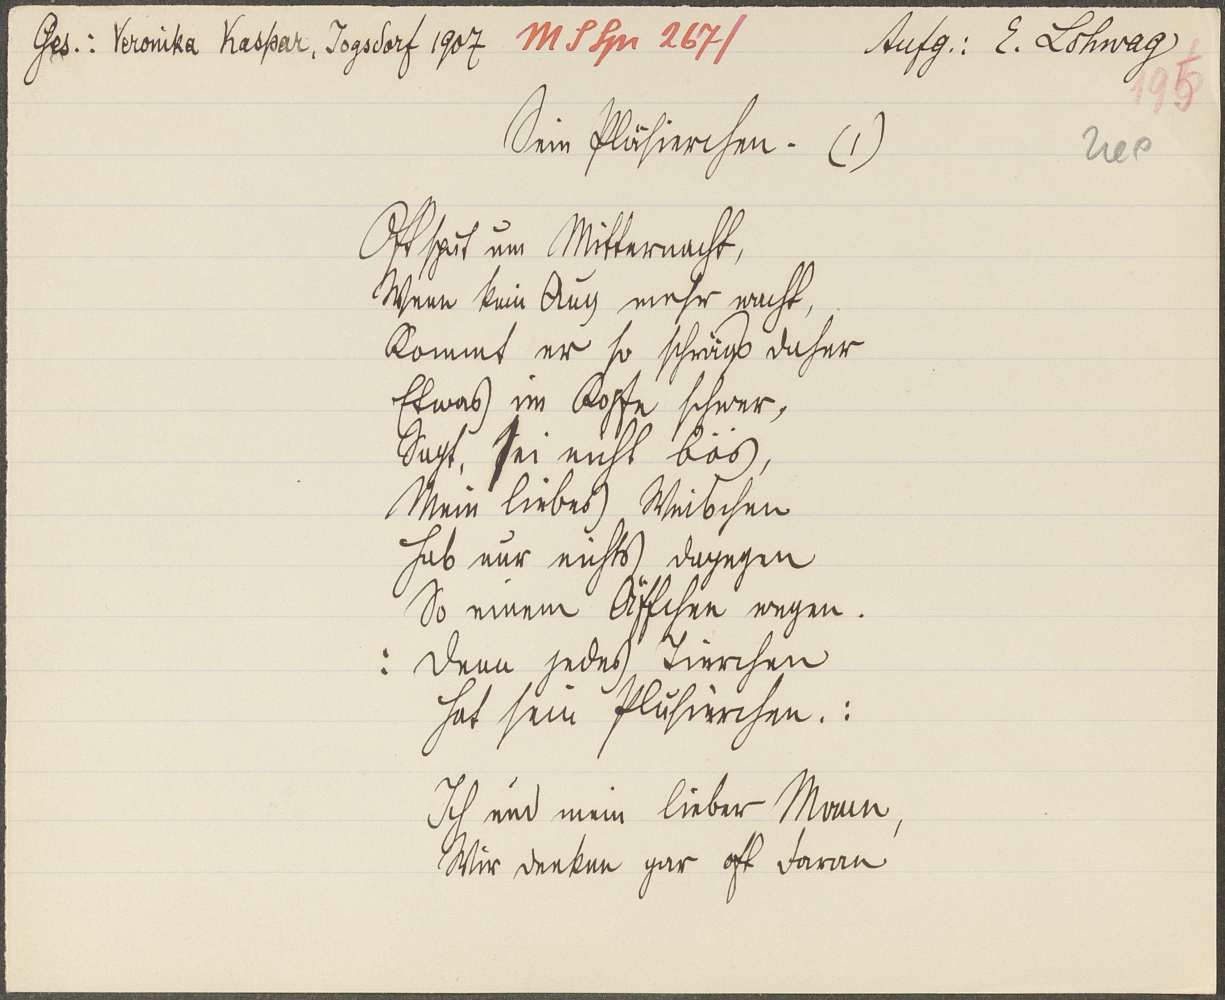 Ges.: Veronika Kaspar, Jogsdorf 1907 MS Spr 267/ Aufg.: E. Lohwag
195
Sein Pläsierchen. (1)
Oft spät um Mitternacht,
Wenn kein Aug mehr wacht,
Kommt er so schrägs daher
Etwas im Kopfe schwer,
Sagt, sei nicht bös,
Mein liebes Weibchen
hab nur nichts dagegen
So einem Äffchen wegen.
: Denn jedes Tierchen
hat sein Pläsierchen. :
Ich und mein lieber Mann,
Wir denken gar oft daran